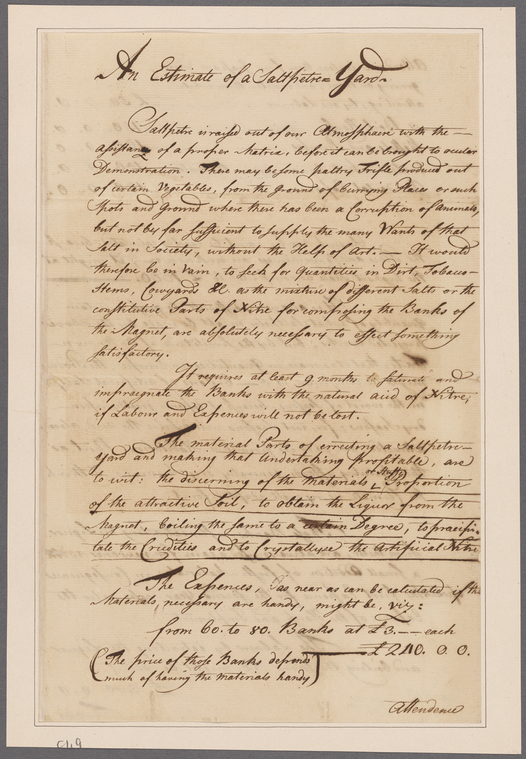 An Estimate of a Saltpetre= Yard.
Saltpetre is raised out of our Atmosphaere with the —
assistance of a proper Matrix, before it can be brought to ocular
Demonstration. There may be some paltry Trifle produced out
of certain Vegetables, from the Ground of Currying Places or such
Spots and Ground where there has been a Corruption of Animals,
but not by far sufficient to supply the many Wants of that
Salt in Society, without the Help of Art. — It would
therefore be in vain, to seek for Quantities in Dirt, Tobacco-
Stems, Cowyards &c. as the mixture of different Salts or the
constitutive Parts of Nitre for composing the Banks of
the Magnet, are absolutely necessary to effect something
satisfactory.
It requires at least 9 months to saturate and
impraegnate the Banks with the natural acid of Nitre,
if Labour and Expences will not be lost.
The material Parts of erecting a Saltpetre-
yard and making that Undertaking profitable, are
or Stuff
to wit: the discerning of the Materials, Proportion
of the attractive Soil, to obtain the Liquor from the
Magnet, boiling the same to a certain Degree, to praecipi-
tate the Crudities and to Crystallyse the Artificial Nitre
The Expences, as near as can be calculated, if the
Materials necessary are handy, might be, viz:
from 60. to 80. Banks at £3. —— each
£ 240. 0 0.
(The price of those Banks depends
much of having the materials handy)
Attendence
549